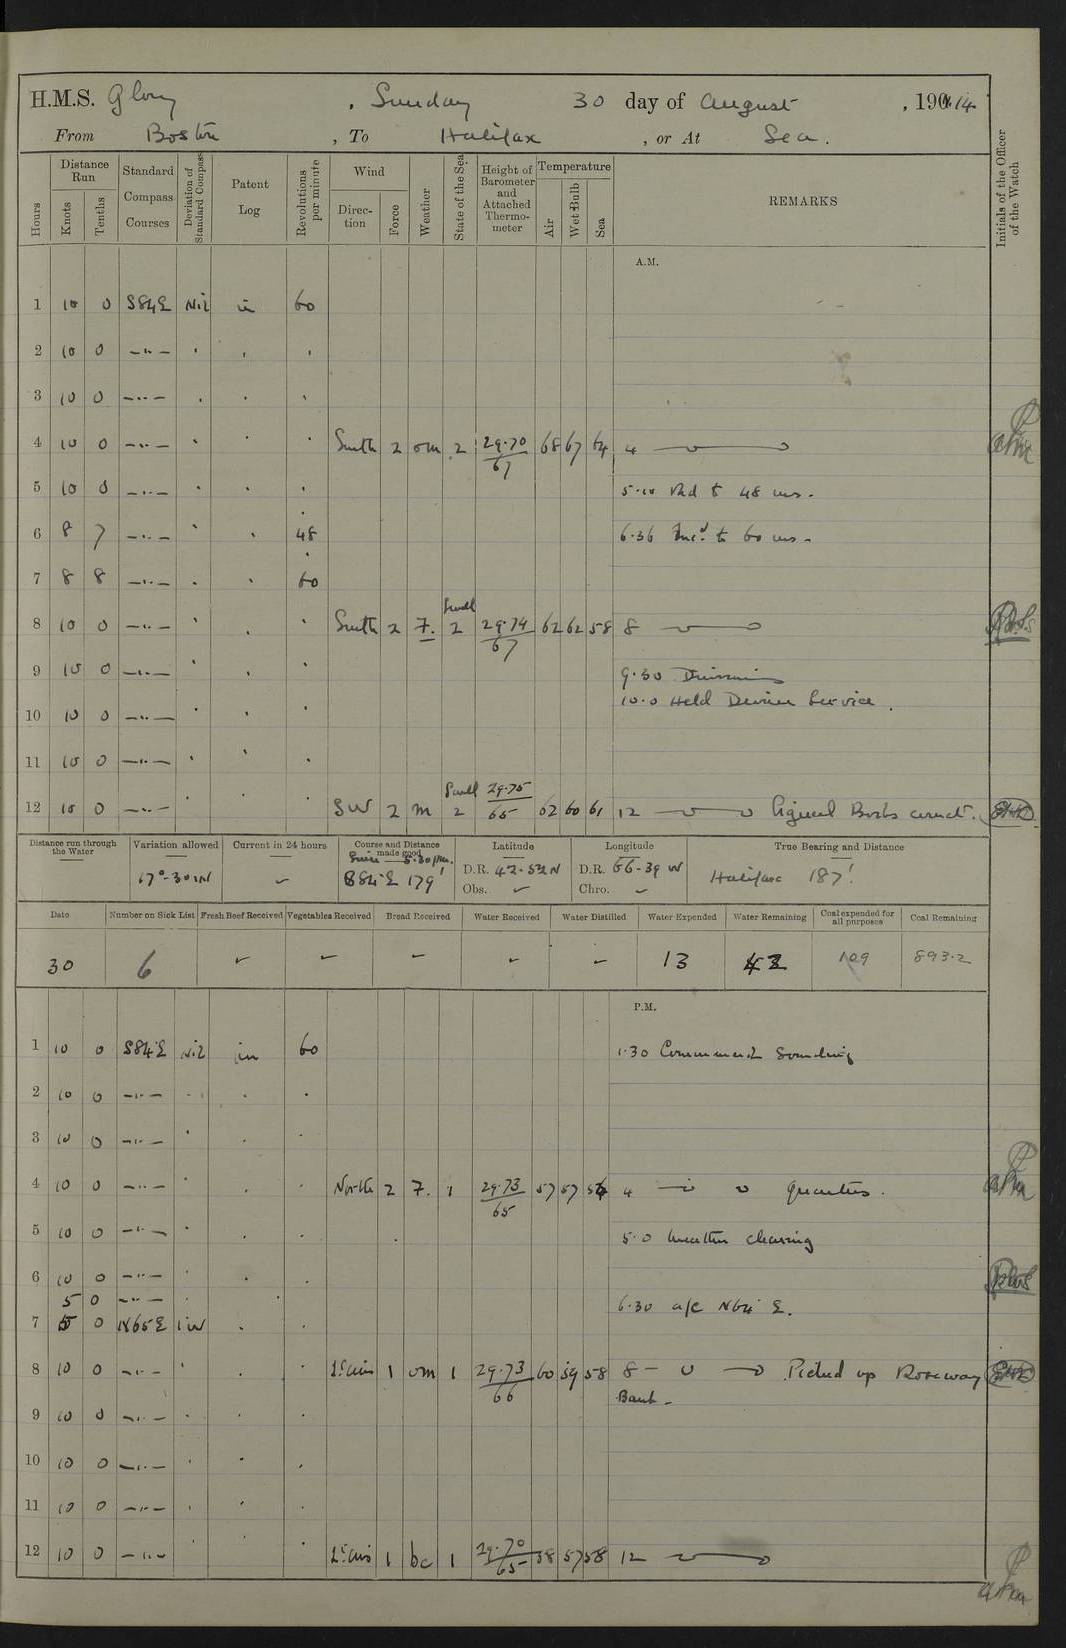 H.M.S. Glory, Sunday 30 day of August, 1914.
From Boston, To Halifax, or At Sea.
Hours Distance Run Knots Tenths Standard Compass Courses Deviation of Standard Compass Patent Log Revolutions per minute Wind Direction Force Weather State of the Sea Height of Barometer and Attached Thermometer Temperature Air Wet Bulb Sea REMARKS Initials of the Officer of the Watch
A.M.
1 10 0 S84E Nil in 60
2 10 0 —"—
3 10 0 —"—
4 10 0 —"— South 2 om 2 29.70/67 68 67 64 4
5 10 0 —"— 5.10 Red to 48 revs.
6 8 7 —"— 48 6.36 Incd. to 60 revs.
7 8 8 —"— 60
8 10 0 —"— South 2 F. Swell 2 29.74/67 62 62 58 8
9 10 0 —"— 9.30 Divisions
10.0 Held Divine Service.
10 10 0 —"—
11 10 0 —"—
12 10 0 —"— SW 2 m Swell 2 29.75/65 62 60 61 12 Signed Books correct.
Distance run through the Water Variation allowed 17°-30'W Current in 24 hours Course and Distance made good Since 5.30pm. S84°E 179' Latitude D.R. 42-52N Obs. Longitude D.R. 66-39 W Chro. True Bearing and Distance Halifax 187'.
Date Number on Sick List Fresh Beef Received Vegetables Received Bread Received Water Received Water Distilled Water Expended Water Remaining Coal expended for all purposes Coal Remaining
30 6 13 109 893.2
P.M.
1 10 0 S84°E Nil in 60 1.30 Commenced Sounding
2 10 0 —"—
3 10 0 —"—
4 10 0 —"— North 2 F. 1 29.73/65 57 57 56 4 Quarters.
5 10 0 —"— 5.0 Weather clearing
6 10 0 —"—
5 0 —"— 6.30 a/c N64°E.
7 5 0 N65E 1W
8 10 0 —"— Lt airs 1 om 1 29.73/66 60 59 58 8 Picked up Roseway
Bank.
9 10 0 —"—
10 10 0 —"—
11 10 0 —"—
12 10 0 —"— Lt airs 1 bc 1 29.70/65 58 57 58 12